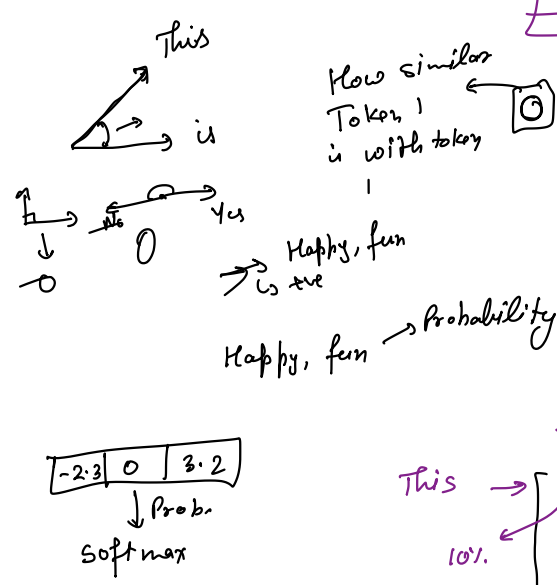 This
is
How similar
Token 1
is with token
1
0
No
Yes
0
0
Happy, fun
is +ve
Happy, fun → Probability
-2.3 0 3.2
Prob.
Softmax
This →
10%